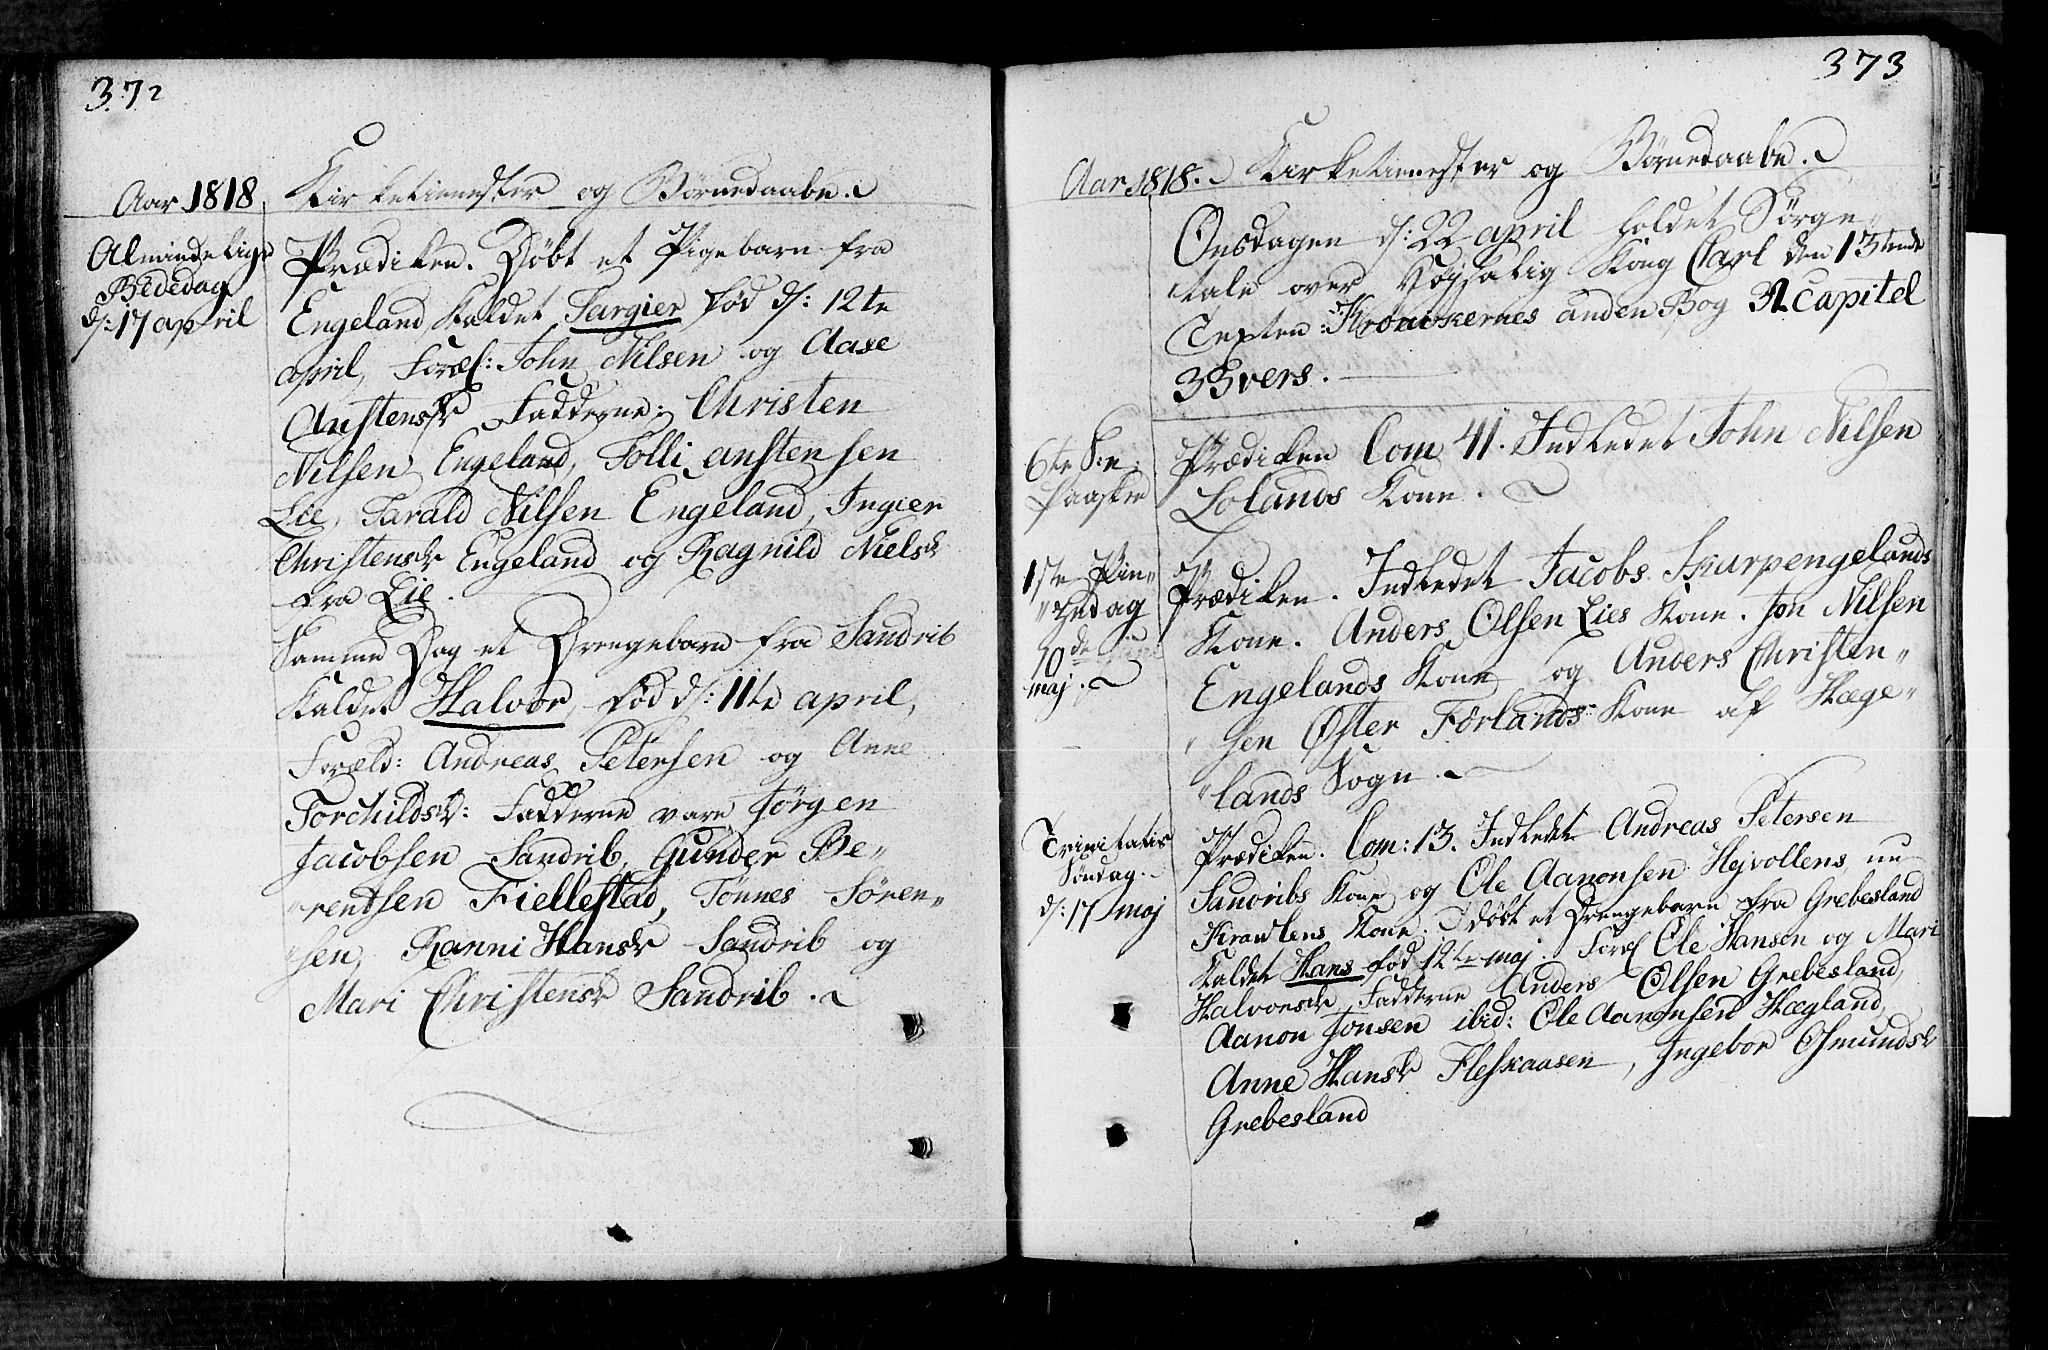 372
Aar 1818
Kirketienester og Börnedaabe.
Almindelige
Bededag
d: 17 april
Prædiken. Döbt et Pigebarn fra
Engeland kaldet Targier fød d: 12te
april, Foræl: John Nilsen og Aase
Anstensdr Fadderne: Christen
Nilsen Engeland, Tolli anstensen
Lie, Tarald Nilsen Engeland, Ingier
Christensdr Engeland og Ragnild Nielsdr
fra Lie.
Samme Dag et Drengebarn fra Sandrib
kaldet Halvor, fød d: 11te april,
Foræld: Andreas Petersen og Anne
Torchildsdr: Fadderne vare Jörgen
Jacobsen Sandrib, Gunder Be„
„rentsen Fiellestad, Tönnes Sören„
„sen, Ranni Hansdr Sandrib og
Mari Christensdr Sandrib.
373
Aar 1818. Kirketienester og Börnedaabe.
Onsdagen d: 22 april holdet Sörge„
tale over Høysalig Kong Carl den 13tende
Texten: Kronikernes anden Bog 32 Capitel
33 vers.
6te S: e:
Paaske
Prædiken Com 41. Indledet John Nilsen
Lolands Kone.
1ste Pin„
„tzedag
10de
maj.
Prædiken. Indledet Jacobs Skarpengelands
Kone. Anders Olsen Lies Kone. Jon Nilsen
Engelands Kone og Anders Christen„
„sen Øster Förlands Kone af Hæge„
„lands Sogn.
Trinitatis
Søndag.
d: 17 maj
Prædiken. Com: 13. Indledt Andreas Petersen
Sandribs Kone og Ole Aanonsen Hejvollens, nu
Krawlens Kone. Döbt et Drengebarn fra Grebesland
kaldet Hans fød 12te maj. Foræl Ole Hanson og Mari
Halvorsdr Fadderne Anders Olsen Grebesland,
Aanon Jonsen ibid: Ole Aanonsen Hægland,
Anne Hansdr Fleskaasen, Ingebor Osmundsdr
Grebesland